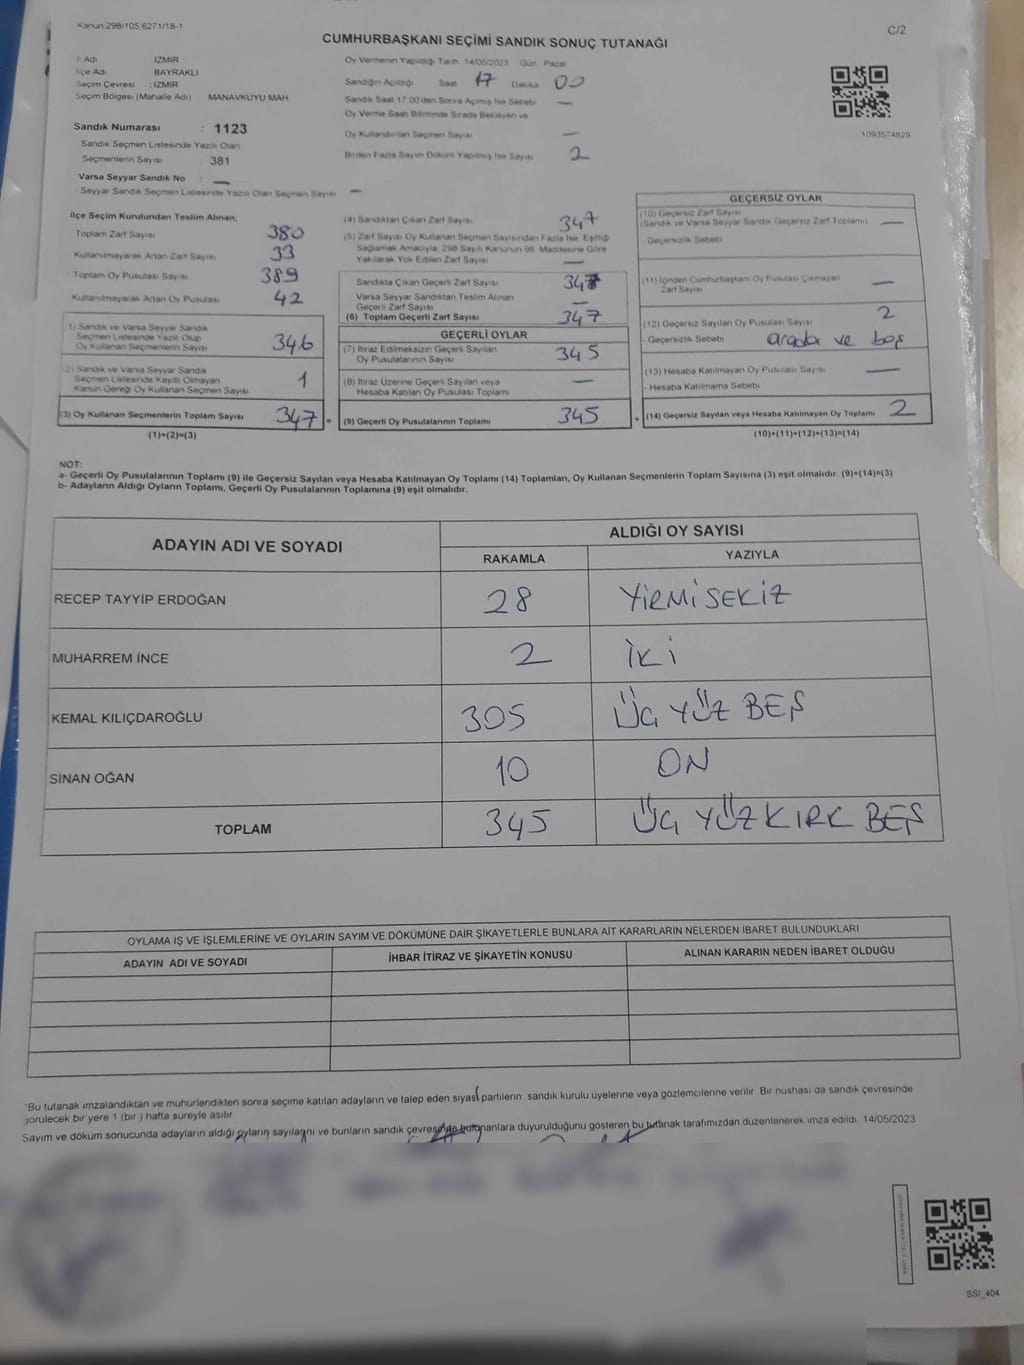 Kanun 298/105 6271/18-1
C/2
CUMHURBAŞKANI SEÇİMİ SANDIK SONUÇ TUTANAĞI
İl Adı İZMİR
İlçe Adı BAYRAKLI
Seçim Çevresi : İZMİR
Seçim Bölgesi (Mahalle Adı) MANAVKUYU MAH
Sandık Numarası : 1123
Sandık Seçmen Listesinde Yazılı Olan
Seçmenlerin Sayısı : 381
Varsa Seyyar Sandık No : —
Seyyar Sandık Seçmen Listesinde Yazılı Olan Seçmen Sayısı —
Oy Vermenin Yapıldığı Tarih 14/05/2023 Gün Pazar
Sandığın Açıldığı Saat 17 Dakika 00
Sandık Saat 17.00'den Sonra Açılmış İse Sebebi —
Oy Verme Saati Bitiminde Sırada Bekleyen ve
Oy Kullandırılan Seçmen Sayısı —
Birden Fazla Sayım Döküm Yapılmış İse Sayısı 2
1093574829
İlçe Seçim Kurulundan Teslim Alınan;
Toplam Zarf Sayısı 380
Kullanılmayarak Artan Zarf Sayısı 33
Toplam Oy Pusulası Sayısı 389
Kullanılmayarak Artan Oy Pusulası 42
1) Sandık ve Varsa Seyyar Sandık
Seçmen Listesinde Yazılı Olup
Oy Kullanan Seçmenlerin Sayısı 346
2) Sandık ve Varsa Seyyar Sandık
Seçmen Listesinde Kayıtlı Olmayan
Kanun Gereği Oy Kullanan Seçmen Sayısı 1
(3) Oy Kullanan Seçmenlerin Toplam Sayısı 347 =
(1)+(2)=(3)
(4) Sandıktan Çıkan Zarf Sayısı 347
(5) Zarf Sayısı Oy Kullanan Seçmen Sayısından Fazla İse, Eşitliği
Sağlamak Amacıyla, 298 Sayılı Kanunun 98. Maddesine Göre
Yakılarak Yok Edilen Zarf Sayısı —
Sandıkta Çıkan Geçerli Zarf Sayısı 347
Varsa Seyyar Sandıktan Teslim Alınan
Geçerli Zarf Sayısı —
(6) Toplam Geçerli Zarf Sayısı 347
GEÇERLİ OYLAR
(7) İtiraz Edilmeksizin Geçerli Sayılan
Oy Pusulalarının Sayısı 345
(8) İtiraz Üzerine Geçerli Sayılan veya
Hesaba Katılan Oy Pusulası Toplamı —
(9) Geçerli Oy Pusulalarının Toplamı 345 +
GEÇERSİZ OYLAR
(10) Geçersiz Zarf Sayısı
(Sandık ve Varsa Seyyar Sandık Geçersiz Zarf Toplamı) —
Geçersizlik Sebebi
(11) İçinden Cumhurbaşkanı Oy Pusulası Çıkmayan
Zarf Sayısı —
(12) Geçersiz Sayılan Oy Pusulası Sayısı 2
- Geçersizlik Sebebi arada ve boş
(13) Hesaba Katılmayan Oy Pusulası Sayısı —
- Hesaba Katılmama Sebebi
(14) Geçersiz Sayılan veya Hesaba Katılmayan Oy Toplamı 2
(10)+(11)+(12)+(13)=(14)
NOT:
a- Geçerli Oy Pusulalarının Toplamı (9) ile Geçersiz Sayılan veya Hesaba Katılmayan Oy Toplamı (14) Toplamları, Oy Kullanan Seçmenlerin Toplam Sayısına (3) eşit olmalıdır. (9)+(14)=(3)
b- Adayların Aldığı Oyların Toplamı, Geçerli Oy Pusulalarının Toplamına (9) eşit olmalıdır.
ADAYIN ADI VE SOYADI
ALDIĞI OY SAYISI
RAKAMLA YAZIYLA
RECEP TAYYİP ERDOĞAN 28 YİRMİSEKİZ
MUHARREM İNCE 2 İKİ
KEMAL KILIÇDAROĞLU 305 ÜÇ YÜZ BEŞ
SİNAN OĞAN 10 ON
TOPLAM 345 ÜÇ YÜZ KIRK BEŞ
OYLAMA İŞ VE İŞLEMLERİNE VE OYLARIN SAYIM VE DÖKÜMÜNE DAİR ŞİKAYETLERLE BUNLARA AİT KARARLARIN NELERDEN İBARET BULUNDUKLARI
ADAYIN ADI VE SOYADI İHBAR İTİRAZ VE ŞİKAYETİN KONUSU ALINAN KARARIN NEDEN İBARET OLDUĞU
*Bu tutanak imzalandıktan ve mühürlendikten sonra seçime katılan adayların ve talep eden siyasi partilerin sandık kurulu üyelerine veya gözlemcilerine verilir. Bir nüshası da sandık çevresinde
görülecek bir yere 1 (bir) hafta süreyle asılır
Sayım ve döküm sonucunda adayların aldığı oyların sayılarını ve bunların sandık çevresinde bulunanlara duyurulduğunu gösteren bu tutanak tarafımızdan düzenlenerek imza edildi. 14/05/2023
SSI_404